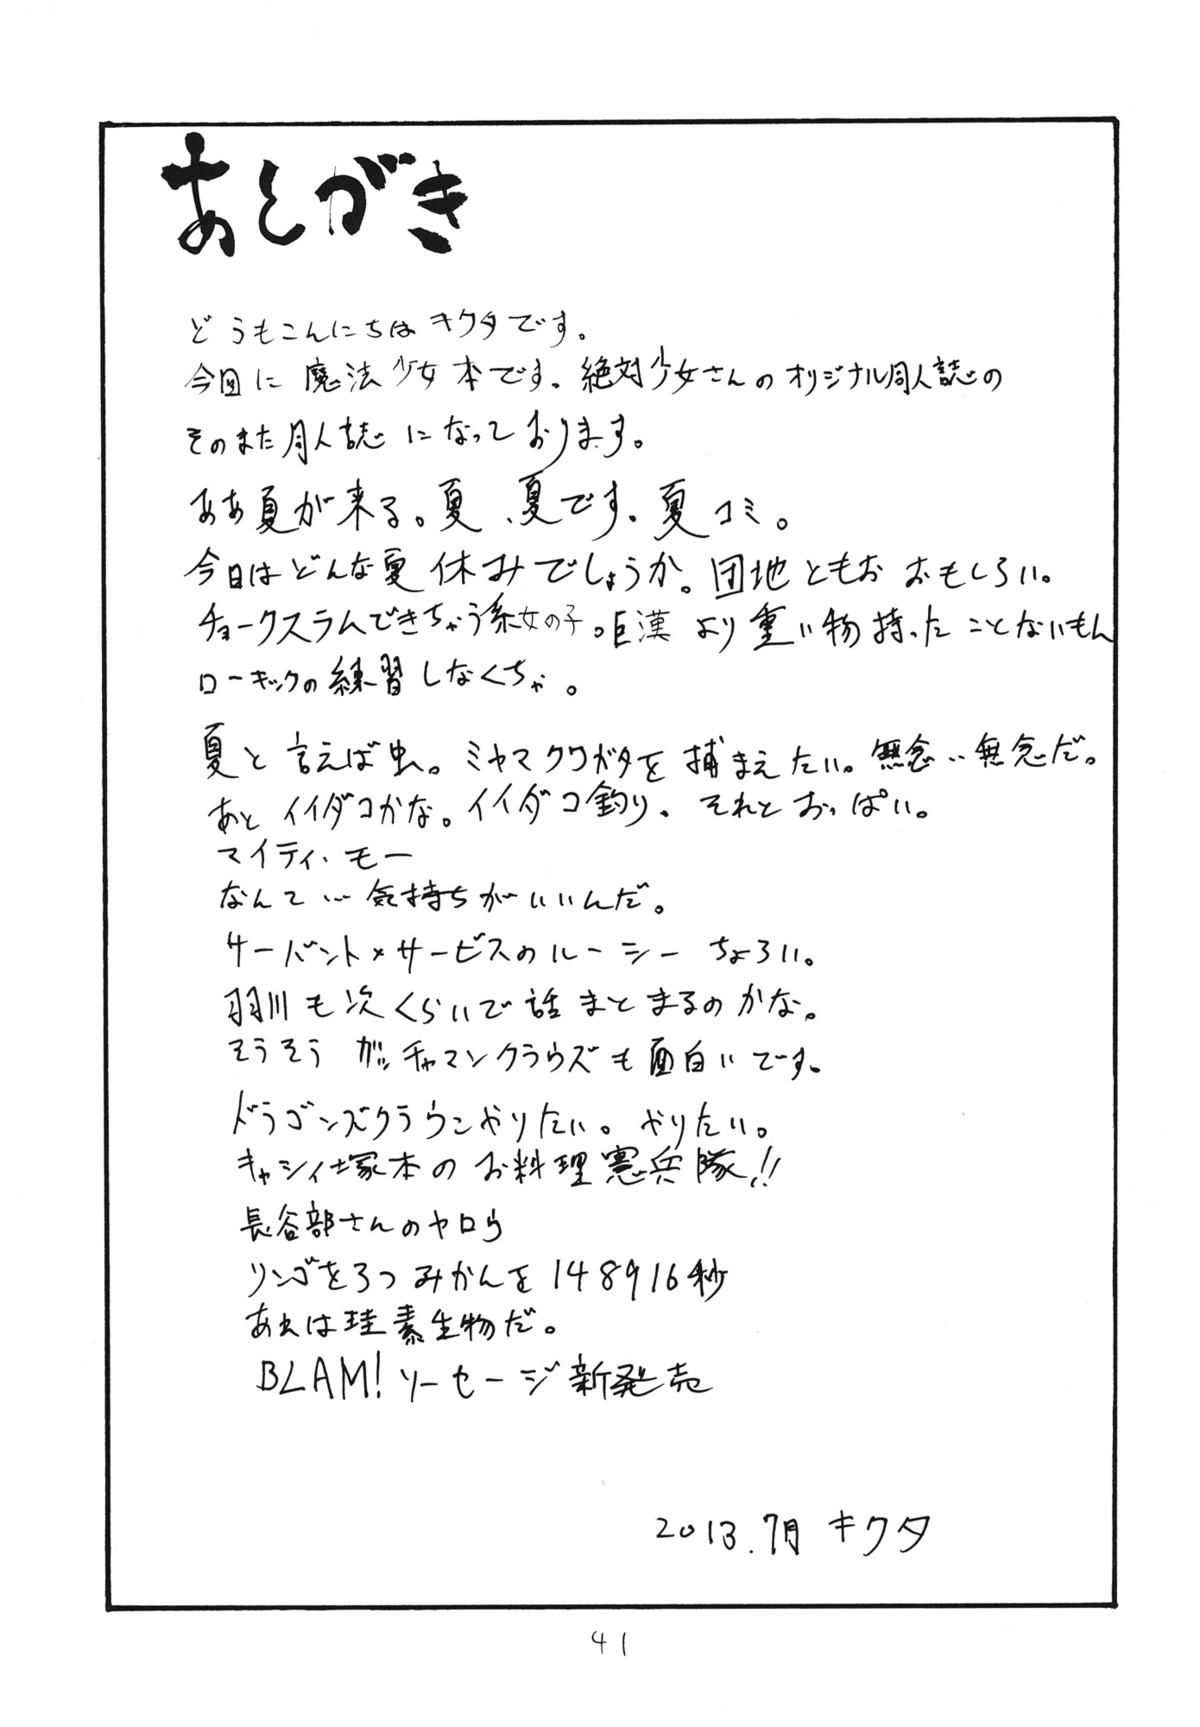 あとがき
どうもこんにちは キクタです。
今回に 魔法少女本です。絶対少女さんのオリジナル同人誌の
そのまた同人誌 になっております。
ああ夏が来る。夏、夏です。夏コミ。
今日はどんな夏休みでしょうか。団地ともお おもしろい。
チョークスラムできちゃう系女の子。巨漢 より重い物持ったことないもん
ローキックの練習しなくちゃ。
夏と言えば虫。ミヤマクワガタを捕まえたい。無念‥無念だ。
あと イイダコかな。イイダコ釣り、それとおっぱい。
マイティ・モー
なんて…気持ちがいいんだ。
サーバント×サービスのルーシー ちょろい。
羽川も次くらいで話まとまるのかな。
そうそう ガッチャマンクラウズも面白いです。
ドラゴンズクラウンやりたい。やりたい。
キャシィ塚本のお料理憲兵隊!!
長谷部さんのヤロウ
リンゴを3つみかんを148916秒
あれは珪素生物だ。
BLAM!ソーセージ新発売
2013.7月 キクタ
41